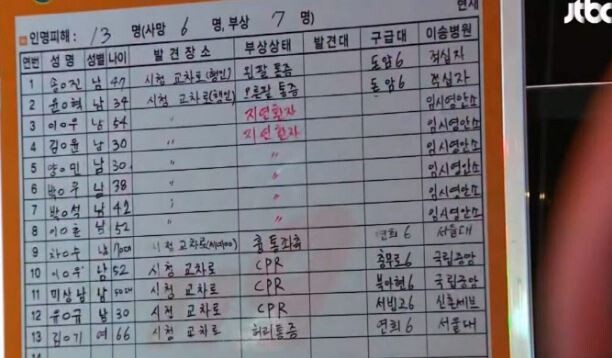 현재
jtbc
인명피해 : 13 명(사망 6 명, 부상 7 명)
연번 성명 성별 나이 발견장소 부상상태 발견대 구급대 이송병원
1 송○진 남 47 시청 교차로(행인) 왼팔 통증 적십자
2 윤○혁 남 34 시청 교차로(행인) 오른팔 통증 적십자
3 이○우 남 54 〃 지연환자 임시영안소
4 김○윤 남 30 〃 지연환자 임시영안소
5 양○민 남 30 〃 〃 임시영안소
6 박○우 남 38 〃 〃 임시영안소
7 박○석 남 42 〃 〃 임시영안소
8 이○훈 남 52 〃 〃 임시영안소
9 차○수 남 시청 교차로 흉통좌측 연희 6 서울대
10 이○우 남 52 시청 교차로 CPR 충무로 6 국립중앙
11 미상남 남 50대 시청 교차로 CPR 북아현 6 국립중앙
12 유○규 남 30 시청 교차로 CPR 서빙고 6 신촌세브
13 김○기 여 66 시청 교차로 허리통증 연희 6 서울대